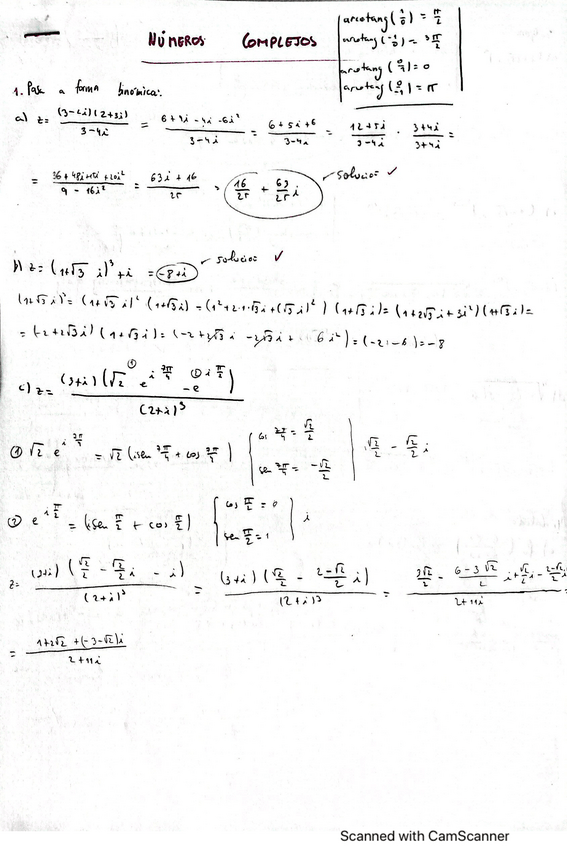 NÚMEROS COMPLEJOS
arcotang (1/0) = π/2
arcotang (-1/0) = 3π/2
arcotang (0/1) = 0
arcotang (0/-1) = π
1. Pasa a forma binómica:
a) z = (3-2i)(2+3i) / 3-4i = 6+9i-4i-6i² / 3-4i = 6+5i+6 / 3-4i = 12+5i / 3-4i · 3+4i / 3+4i =
= 36+48i+15i+20i² / 9-16i² = 63i+16 / 25 = 16/25 + 63/25 i solucion ✓
b) z = (1+√3 i)³ + i = -8+i solucion ✓
(1+√3 i)³ = (1+√3 i)² (1+√3 i) = (1²+2·1·√3 i+(√3 i)²) (1+√3 i) = (1+2√3 i+3i²) (1+√3 i) =
= (-2+2√3 i) (1+√3 i) = (-2+2√3 i -2√3 i + 6i²) = (-2-6) = -8
c) z = (3+i) (√2 e^(i 7π/4) - e^(i π/2)) / (2+i)³
① √2 e^(i 7π/4) = √2 (isen 7π/4 + cos 7π/4) { cos 7π/4 = √2/2
sen 7π/4 = -√2/2 } √2/2 - √2/2 i
② e^(i π/2) = (isen π/2 + cos π/2) { cos π/2 = 0
sen π/2 = 1 } i
z = (3+i) (√2/2 - √2/2 i - i) / (2+i)³ = (3+i) (√2/2 - 2-√2/2 i) / (2+i)³ = 3√2/2 - 6-3√2/2 i + √2/2 i - 2-√2/2 / 2+11i =
= 1+2√2 + (-3-√2)i / 2+11i
Scanned with CamScanner